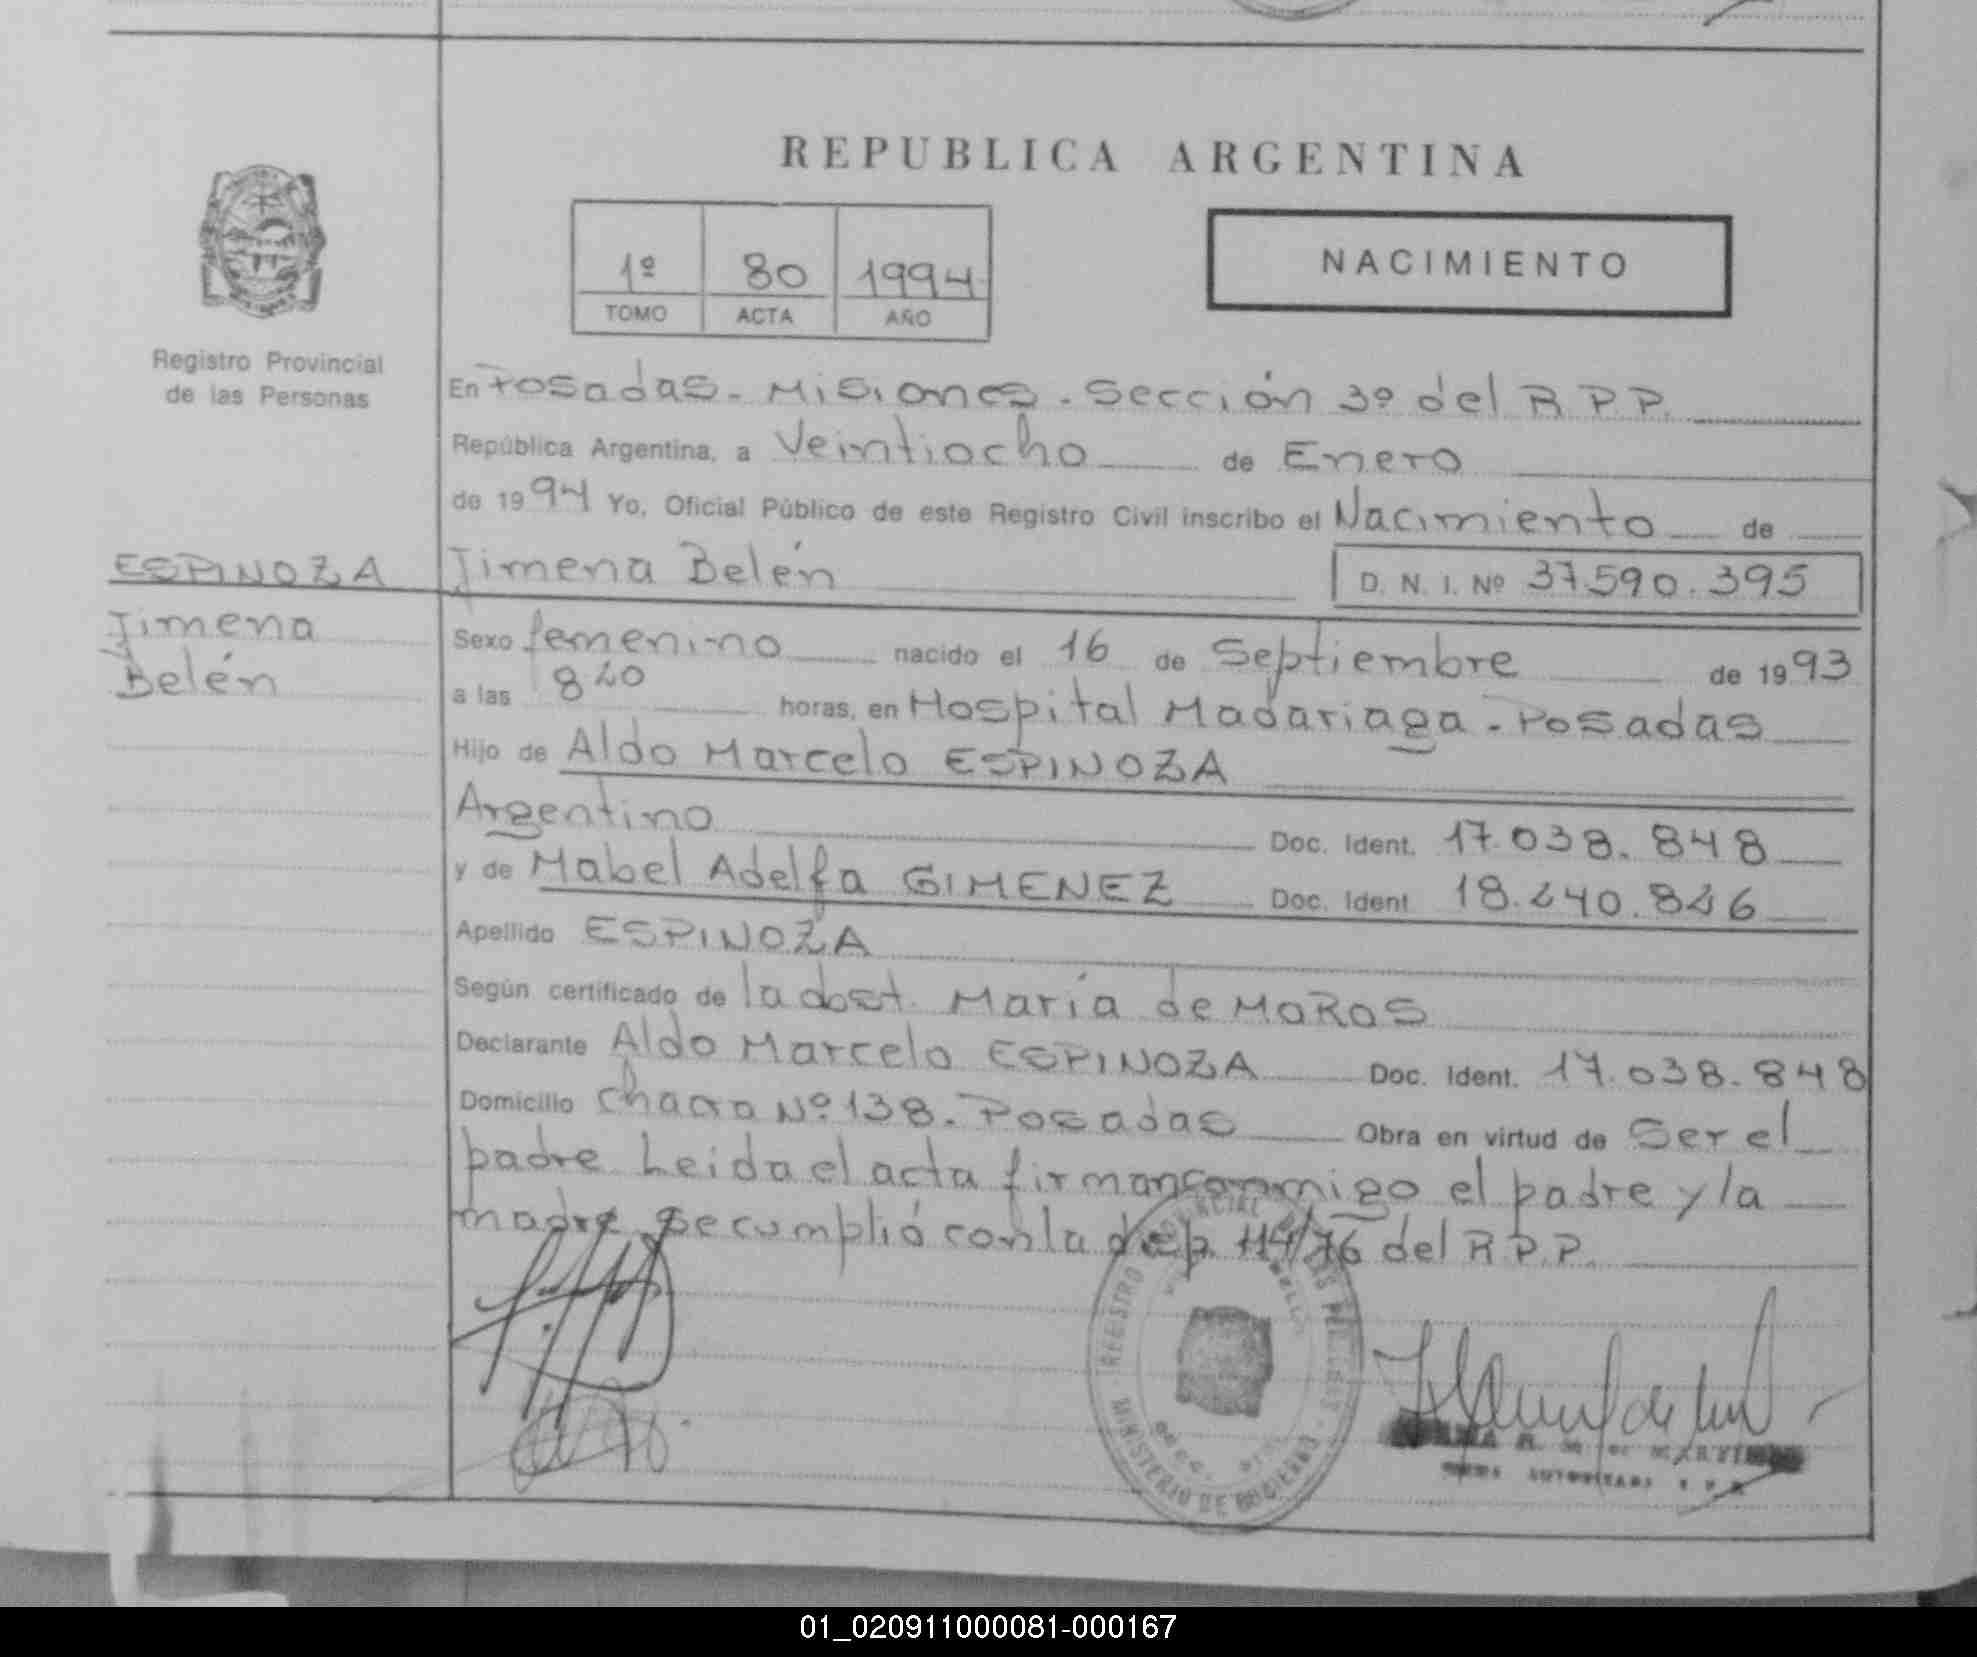 REPUBLICA ARGENTINA
1º 80 1994
TOMO ACTA AÑO
NACIMIENTO
Registro Provincial
de las Personas
En Posadas - Misiones - Sección 3º del R.P.P.
República Argentina, a Veintiocho de Enero
de 1994 Yo, Oficial Público de este Registro Civil inscribo el Nacimiento de
ESPINOZA Jimena Belén D. N. I. Nº 37.590.395
Jimena
Belén
Sexo femenino nacido el 16 de Septiembre de 1993
a las 8 20 horas, en Hospital Madariaga - Posadas
Hijo de Aldo Marcelo ESPINOZA
Argentino Doc. Ident. 17.038.848
y de Mabel Adelfa GIMENEZ Doc. Ident 18.240.826
Apellido ESPINOZA
Según certificado de la obst. María de MOROS
Declarante Aldo Marcelo ESPINOZA Doc. Ident. 17.038.848
Domicilio Chacra Nº 138 - Posadas Obra en virtud de Ser el
padre Leida el acta firman conmigo el padre y la
madre se cumplió con la disp. 114/76 del R.P.P.
REGISTRO PROVINCIAL DE LAS PERSONAS
MINISTERIO DE GOBIERNO
01_020911000081-000167